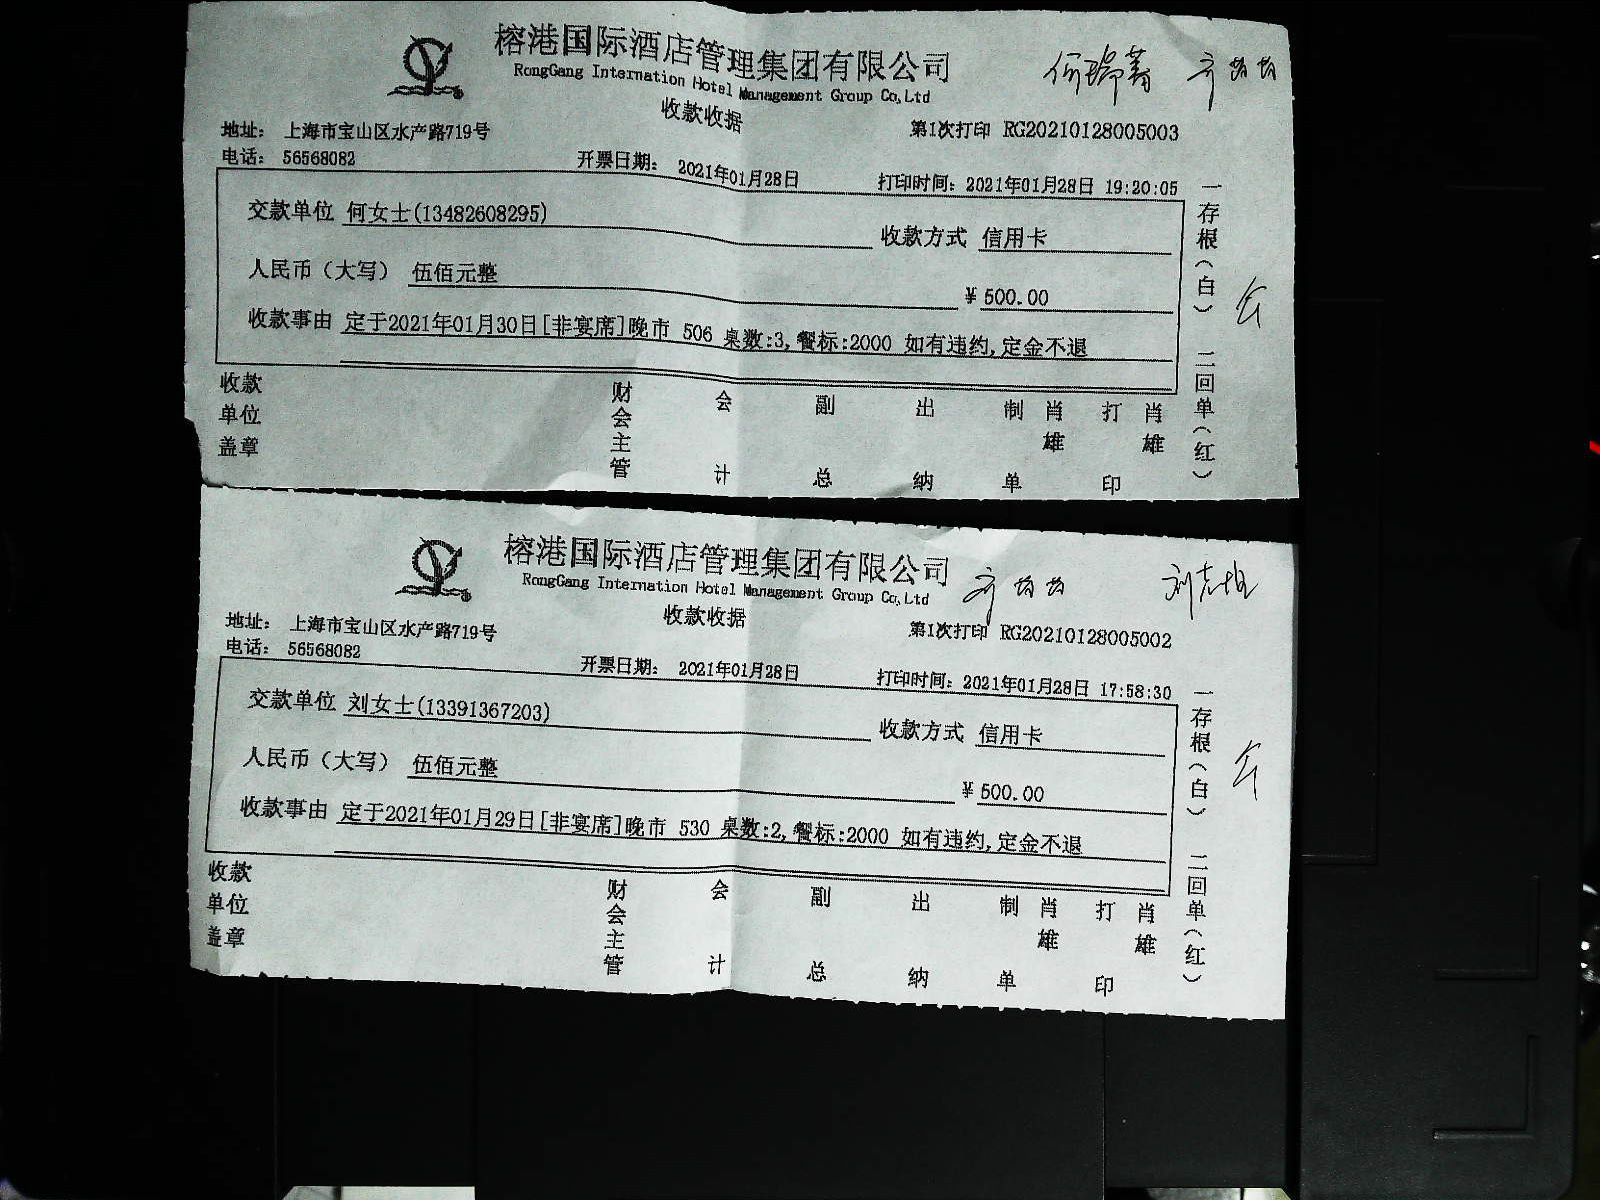 榕港国际酒店管理集团有限公司
RongGang Internation Hotel Management Group Co,Ltd
何瑞菁
收款收据
地址： 上海市宝山区水产路719号
第1次打印 RG20210128005003
电话： 56568082
开票日期： 2021年01月28日
打印时间：2021年01月28日 19:20:05
交款单位 何女士(13482608295)
收款方式 信用卡
人民币（大写） 伍佰元整
￥500.00
收款事由 定于2021年01月30日[非宴席]晚市 506 桌数:3,餐标:2000 如有违约,定金不退
收款单位盖章
财会主管
会计
副总
出纳
制单
肖雄
打印
肖雄
一存根（白） 二回单（红）
榕港国际酒店管理集团有限公司
RongGang Internation Hotel Management Group Co,Ltd
收款收据
地址： 上海市宝山区水产路719号
第1次打印 RG20210128005002
电话： 56568082
开票日期： 2021年01月28日
打印时间：2021年01月28日 17:58:30
交款单位 刘女士(13391367203)
收款方式 信用卡
人民币（大写） 伍佰元整
￥500.00
收款事由 定于2021年01月29日[非宴席]晚市 530 桌数:2,餐标:2000 如有违约,定金不退
收款单位盖章
财会主管
会计
副总
出纳
制单
肖雄
打印
肖雄
一存根（白） 二回单（红）